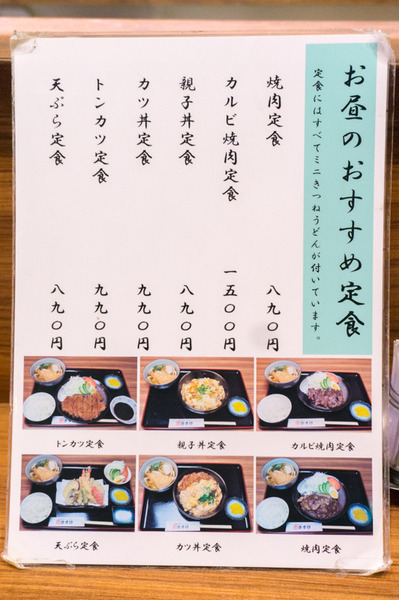 お昼のおすすめ定食
定食にはすべてミニきつねうどんが付いています。
焼肉定食 八九〇円
カルビ焼肉定食 一五〇〇円
親子丼定食 八九〇円
カツ丼定食 九九〇円
トンカツ定食 九九〇円
天ぷら定食 八九〇円
トンカツ定食
親子丼定食
カルビ焼肉定食
天ぷら定食
カツ丼定食
焼肉定食